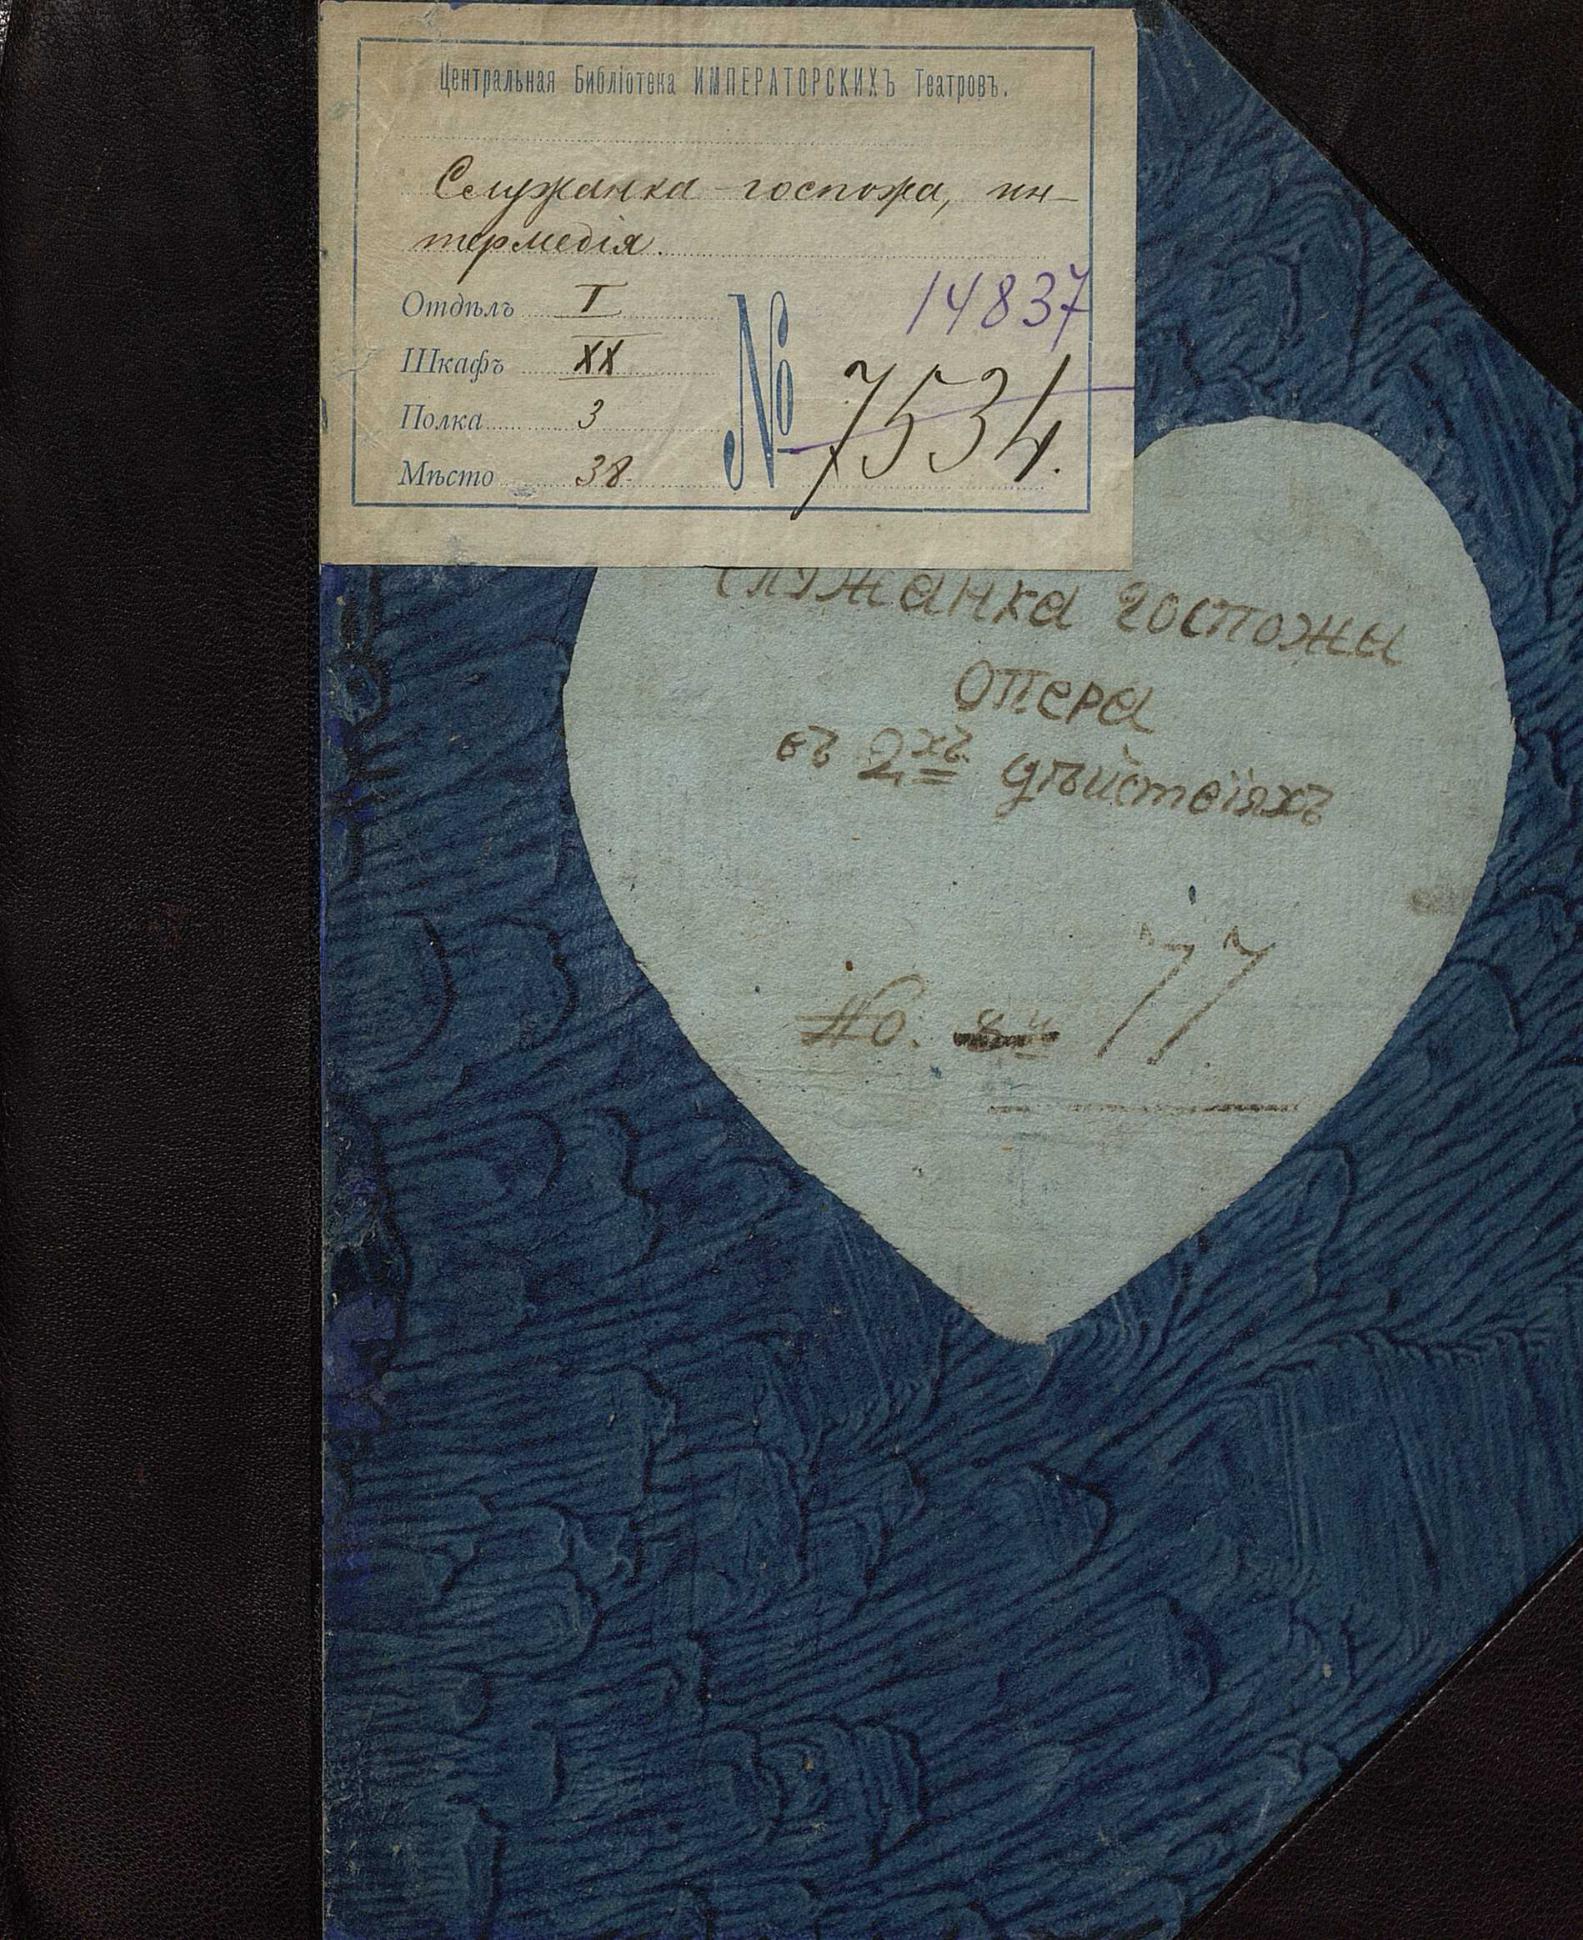 Центральная Библіотека ИМПЕРАТОРСКИХЪ Театровъ.
Служанка-госпожа, ин-
термедія.
14837
Отдѣлъ I
Шкафъ XX
№ 7534.
Полка 3
Мѣсто 38.
служанка госпожы
опера
въ 2хъ дѣйствіяхъ
No. 77